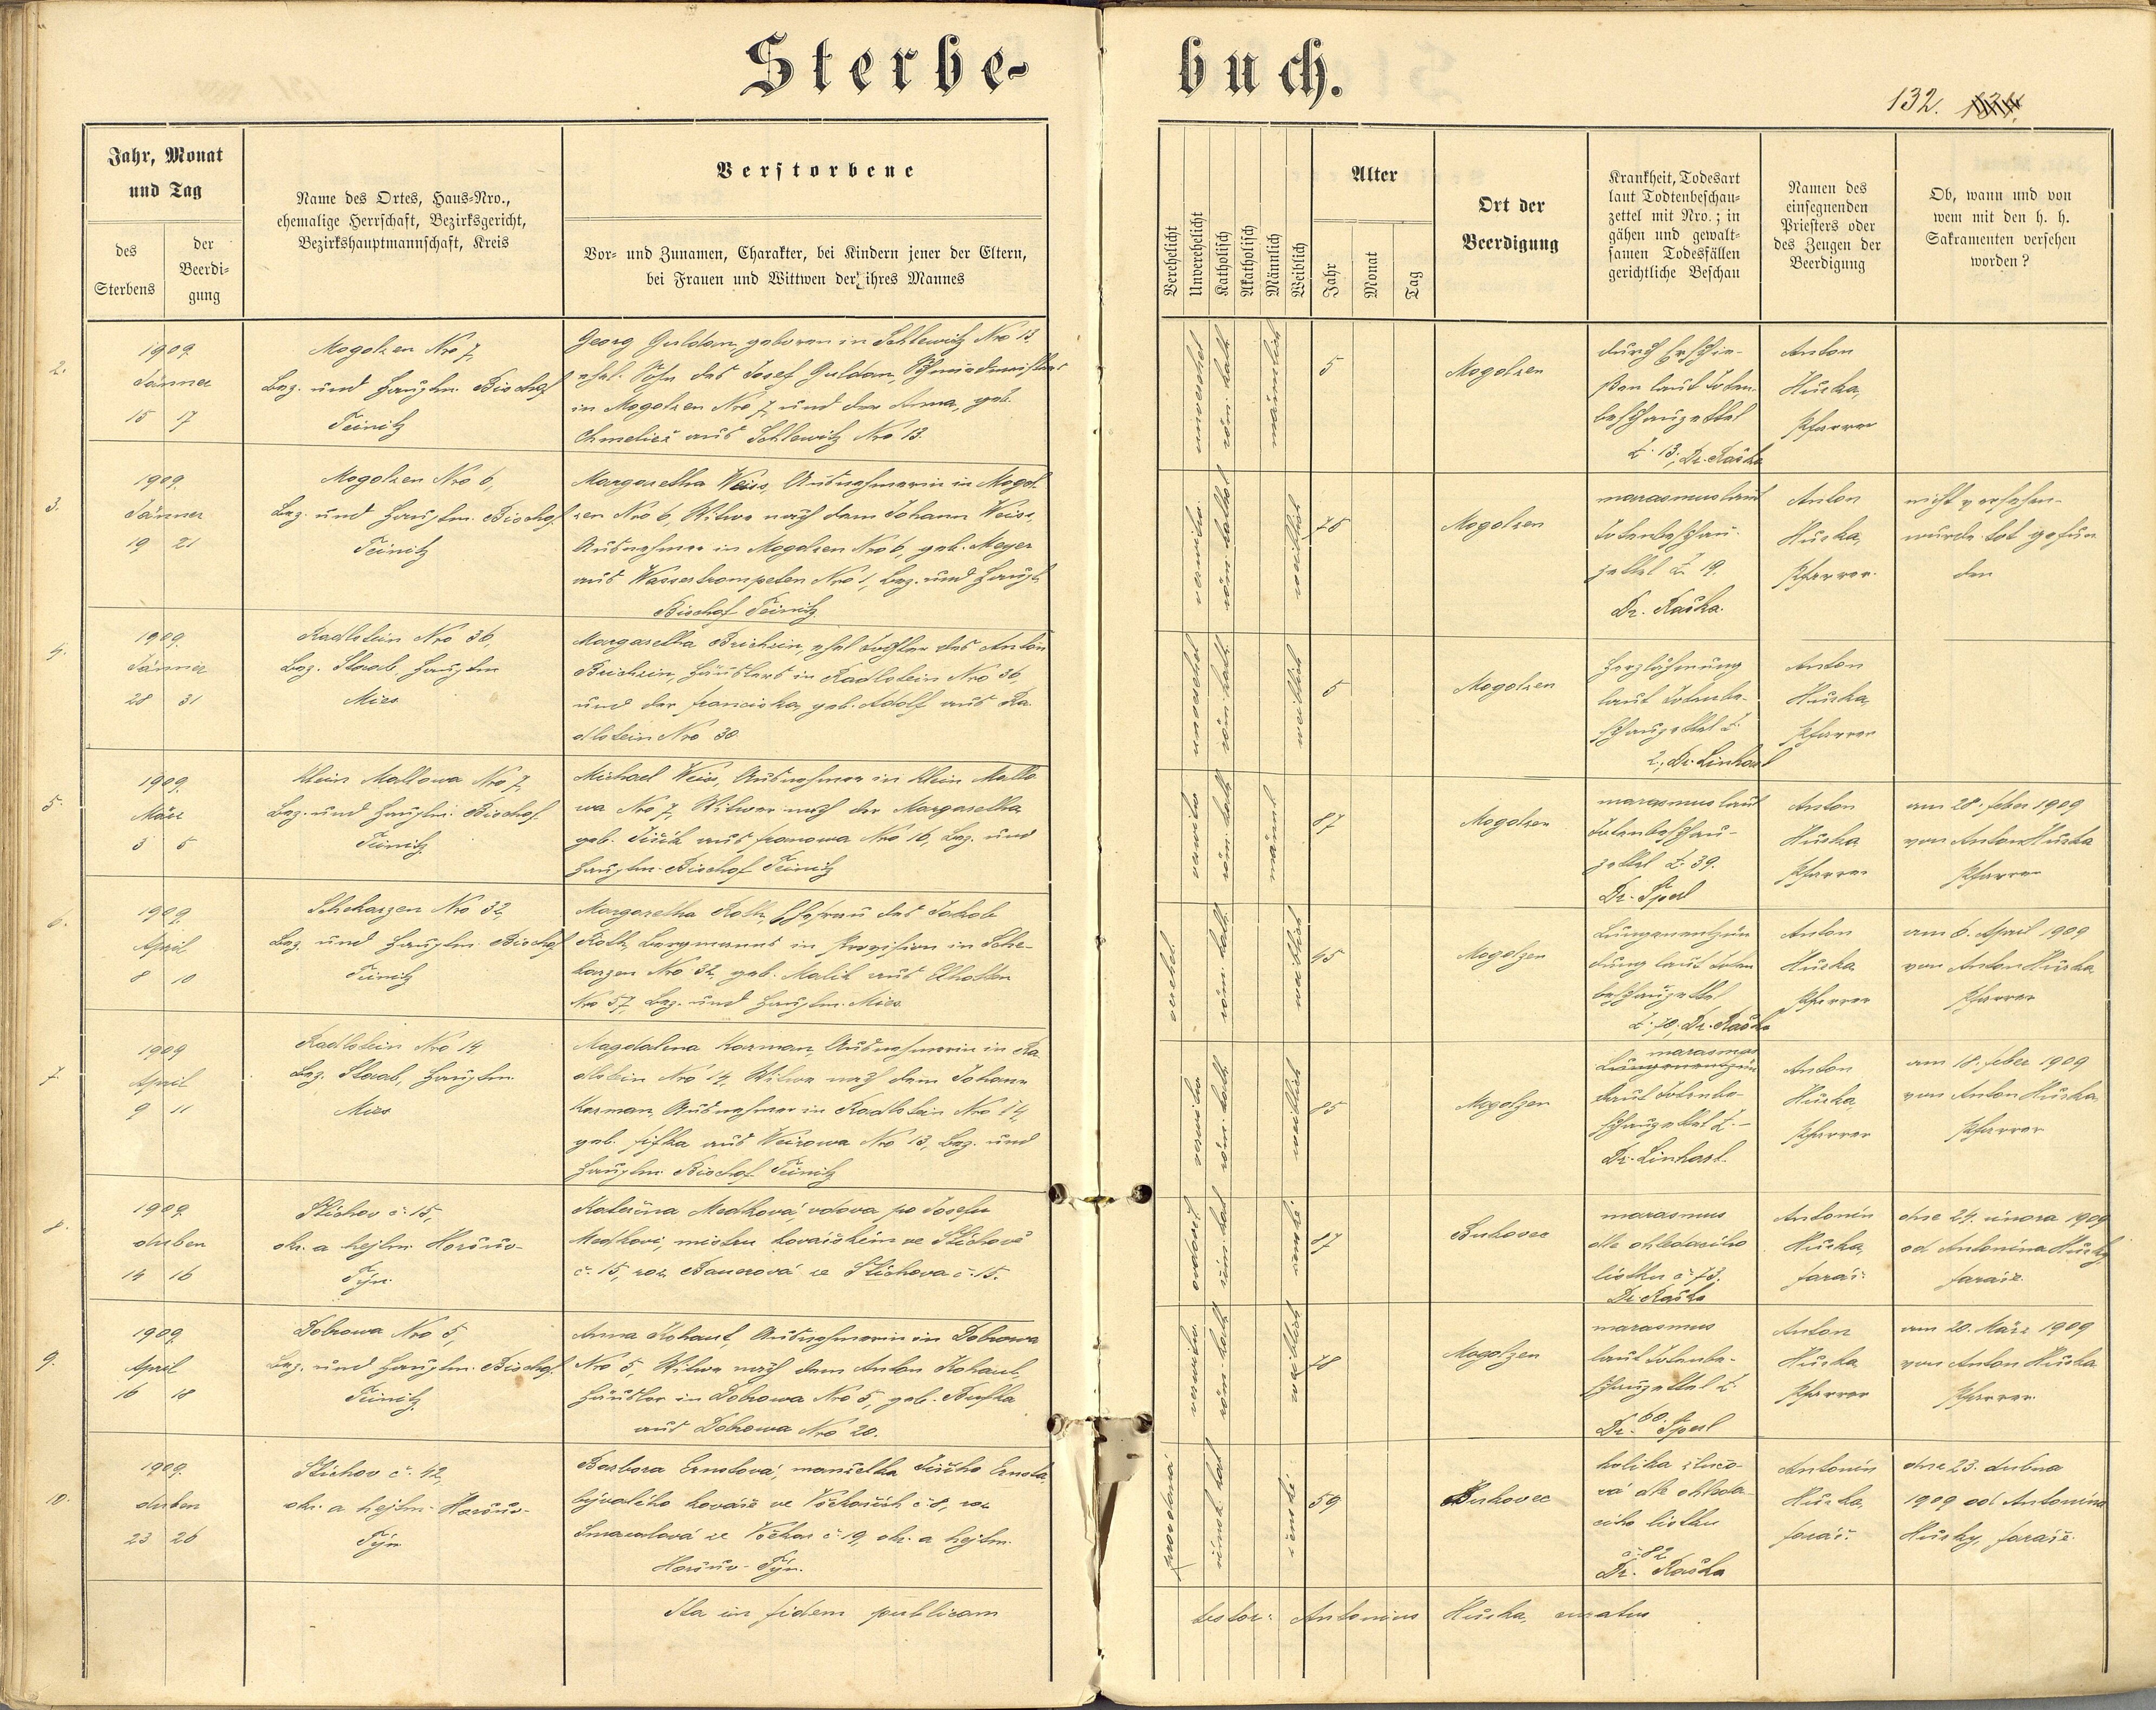 Sterbe-
buch.
132. 134.
Jahr, Monat
und Tag
des
Sterbens
der
Beerdi-
gung
Name des Ortes, Haus-Nro.,
ehemalige Herrschaft, Bezirksgericht,
Bezirkshauptmannschaft, Kreis
Verstorbene
Vor- und Zunamen, Charakter, bei Kindern jener der Eltern,
bei Frauen und Wittwen der ihres Mannes
Verehelicht
Unverehelicht
Katholisch
Akatholisch
Männlich
Weiblich
Alter
Jahr
Monat
Tag
Ort der
Beerdigung
Krankheit, Todesart
laut Todtenbeschau-
zettel mit Nro.; in
gähen und gewalt-
samen Todesfällen
gerichtliche Beschau
Namen des
einsegnenden
Priesters oder
des Zeugen der
Beerdigung
Ob, wann und von
wem mit den h. h.
Sakramenten versehen
worden?
2.
1909.
Jänner
15 17
Mogolzen Nro 7,
Bez. und Hauptm. Bischof
Teinitz
Georg Guldan, geboren in Schlewitz Nro 13,
ehel. Sohn des Josef Guldan, Schmiedmeisters
in Mogolzen Nro 7, und der Anna, geb.
Chmeliez aus Schlewitz Nro 13.
unverehel.
röm. kath.
männlich
5
Mogolzen
durch Erschie-
ßen laut Toten-
beschauzettel
Z. 13, Dr. Raška
Anton
Huska,
Pfarrer
3.
1909.
Jänner
19 21
Mogolzen Nro 6,
Bez. und Hauptm. Bischof
Teinitz
Margaretha Weiss, Ausnehmerin in Mogol-
zen Nro 6, Witwe nach dem Johann Weiss,
Ausnehmer in Mogolzen Nro 6, geb. Meyer
aus Wassertrompeten Nro 1, Bez. und Haupt.
Bischof Teinitz
verwitw.
röm. kathol.
weiblich
75
Mogolzen
marasmus laut
Totenbeschau-
zettel Z. 19.
Dr. Raška.
Anton
Huska,
Pfarrer.
nicht versehen-
wurde tot gefun
den
4.
1909.
Jänner
28 31
Radlstein Nro 36,
Bez. Staab, Hauptm
Mies.
Margaretha Brichzin, ehel. Tochter des Anton
Brichzin, Häuslers in Radlstein Nro 36,
und der Franciska, geb. Adolf aus Ra-
dlstein Nro 30.
unverehel.
röm. kath.
weiblich
5
Mogolzen
Herzlähmung
laut Totenbe-
schauzettel Z.
2, Dr. Linhart
Anton
Huska,
Pfarrer
5.
1909.
März
3 5
Klein Mallowa Nro 7,
Bez. und Hauptm. Bischof
Teinitz.
Michael Weiss, Ausnehmer in Klein Mallo
wa Nro 7, Witwer nach der Margaretha
geb. aus Franowa Nro 16, Bez. und
Hauptm. Bischof Teinitz
verwitw.
röm. kath
männl.
87
Mogolzen
marasmus laut
Totenbeschau-
zettel Z. 39.
Dr. Sperl
Anton
Huska
Pfarrer
am 28. Feber 1909
von Anton Huska
Pfarrer
6.
1909.
April
8 10
Schekarzen Nro 32,
Bez. und Hauptm. Bischof
Teinitz
Margaretha Roth, Ehefrau des Jakob
Roth, Bergmanns in Provision in Sche-
karzen Nro 32, geb. Malik aus Elhotten
Nro 57, Bez. und Hauptm. Mies.
verehel.
röm. kath.
weiblich
45
Mogolzen
Lungenentzün
dung laut Toten
beschauzettel
Z. 70, Dr. Raška
Anton
Huska,
Pfarrer
am 6. April 1909
von Anton Huska,
Pfarrer
7.
1909
April
9 11
Radlstein Nro 14,
Bez. Staab, Hauptm.
Mies
Magdalena Karman, Ausnehmerin in Ra
dlstein Nro 14, Witwe nach dem Johann
Karman, Ausnehmer in Radlstein Nro 14,
geb. Fifka aus Weirowa Nro 13, Bez. und
Hauptm. Bischof Teinitz
verwitw.
röm. kath.
weiblich
85
Mogolzen
marasmus
Lungenentzün
laut Totenbe-
schauzettel Z.-
Dr. Linhart.
Anton
Huska,
Pfarrer
am 18. Feber 1909
von Anton Huska,
Pfarrer
8.
1909
duben
14 16
Štichov č. 15,
okr. a hejtm. Horšův-
Týn.
Kateřina Medková, vdova po Josefu
Medkovi, mistru kovářském ve Štichově
č. 15, roz. Bauerová ze Štichova č. 15.
ovdověl.
řím. kat
ženské.
87
Bukovec
marasmus
dle ohledacího
lístku č. 73.
Dr. Raška
Antonín
Huska,
farář.
dne 24. února 1909
od Antonína Husky,
faráře.
9.
1909.
April
16 18
Dobrowa Nro 5,
Bez. und Hauptm. Bischof.
Teinitz.
Anna Kohaut, Ausnehmerin in Dobrowa
Nro 5, Witwe nach dem Anton Kohaut,
Häusler in Dobrowa Nro 5, geb. Buschka
aus Dobrowa Nro 20.
verwitw.
röm. kath
weiblich
78
Mogolzen
marasmus
laut Totenbe-
schauzettel Z.
60.
Dr. Sperl
Anton
Huska
Pfarrer
am 20. März 1909
von Anton Huska
Pfarrer.
10.
1909.
duben
23 26
Štichov č. 42,
okr. a hejtm. Horšův-
Týn
Barbora Ernstová, manželka Jiřího Ernsta,
bývalého kováře ve Věvrovách č. 8, roz.
č. 19, okr. a hejtm.
Horšův-Týn.
provdaná
římsk. kat
ženské
59
Bukovec
kolika žlučo-
vá dle ohleda-
cího lístku
č. 82
Dr. Raška
Antonín
Huska,
farář.
dne 23. dubna
1909 od Antonína
Husky, faráře.
Ita in fidem publicam
testor: Antonius Huska, curatus